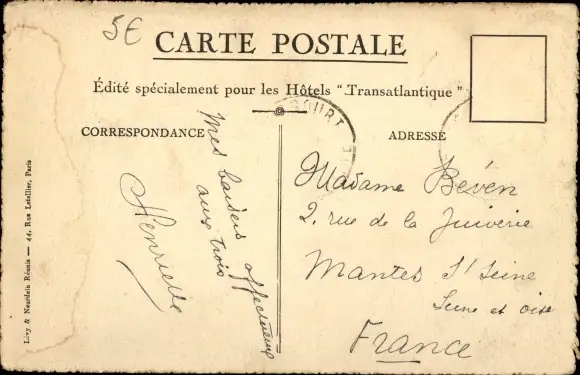 5€
CARTE POSTALE
Édité spécialement pour les Hôtels "Transatlantique"
CORRESPONDANCE
ADRESSE
Mes baisers affectueux
aux trois
Henriette
Madame Béven
2, rue de la Juiverie
Mantes s/ Seine
Seine et oise
France
Lévy & Neurdein Réunis — 44, Rue Letellier, Paris